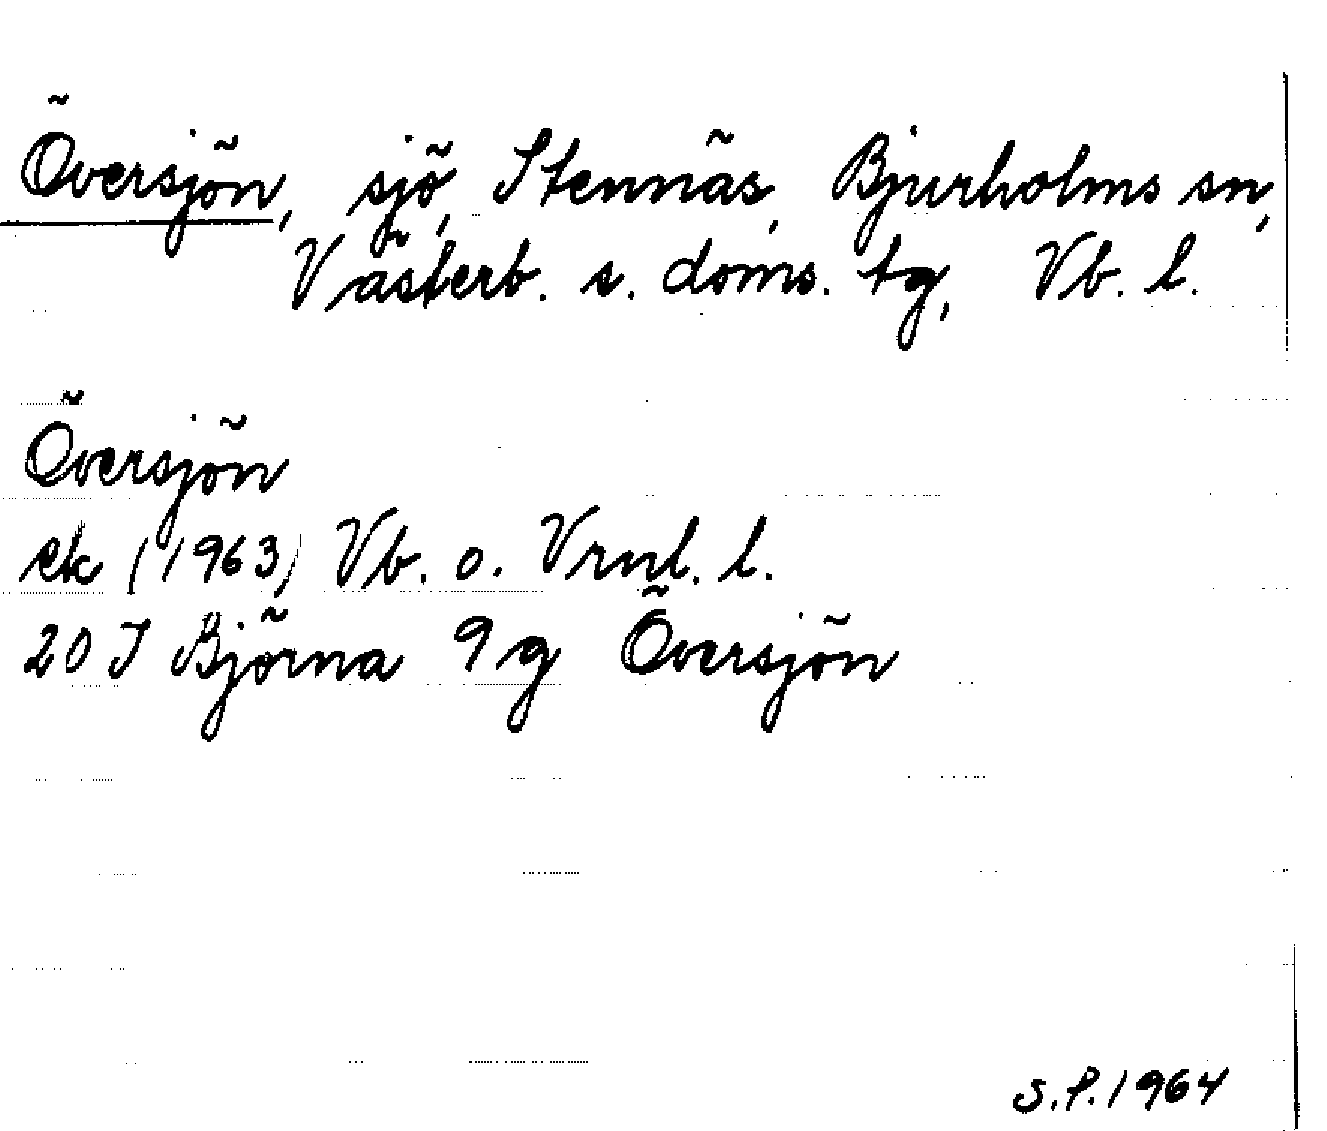 Översjön, sjö, Stennäs, Bjurholms sn,
Västerb. s. doms. tg, Vb. l.
Översjön
ek (1963) Vb. o. Vrnl. l.
20 J Björna 9g Översjön
S.P. 1964